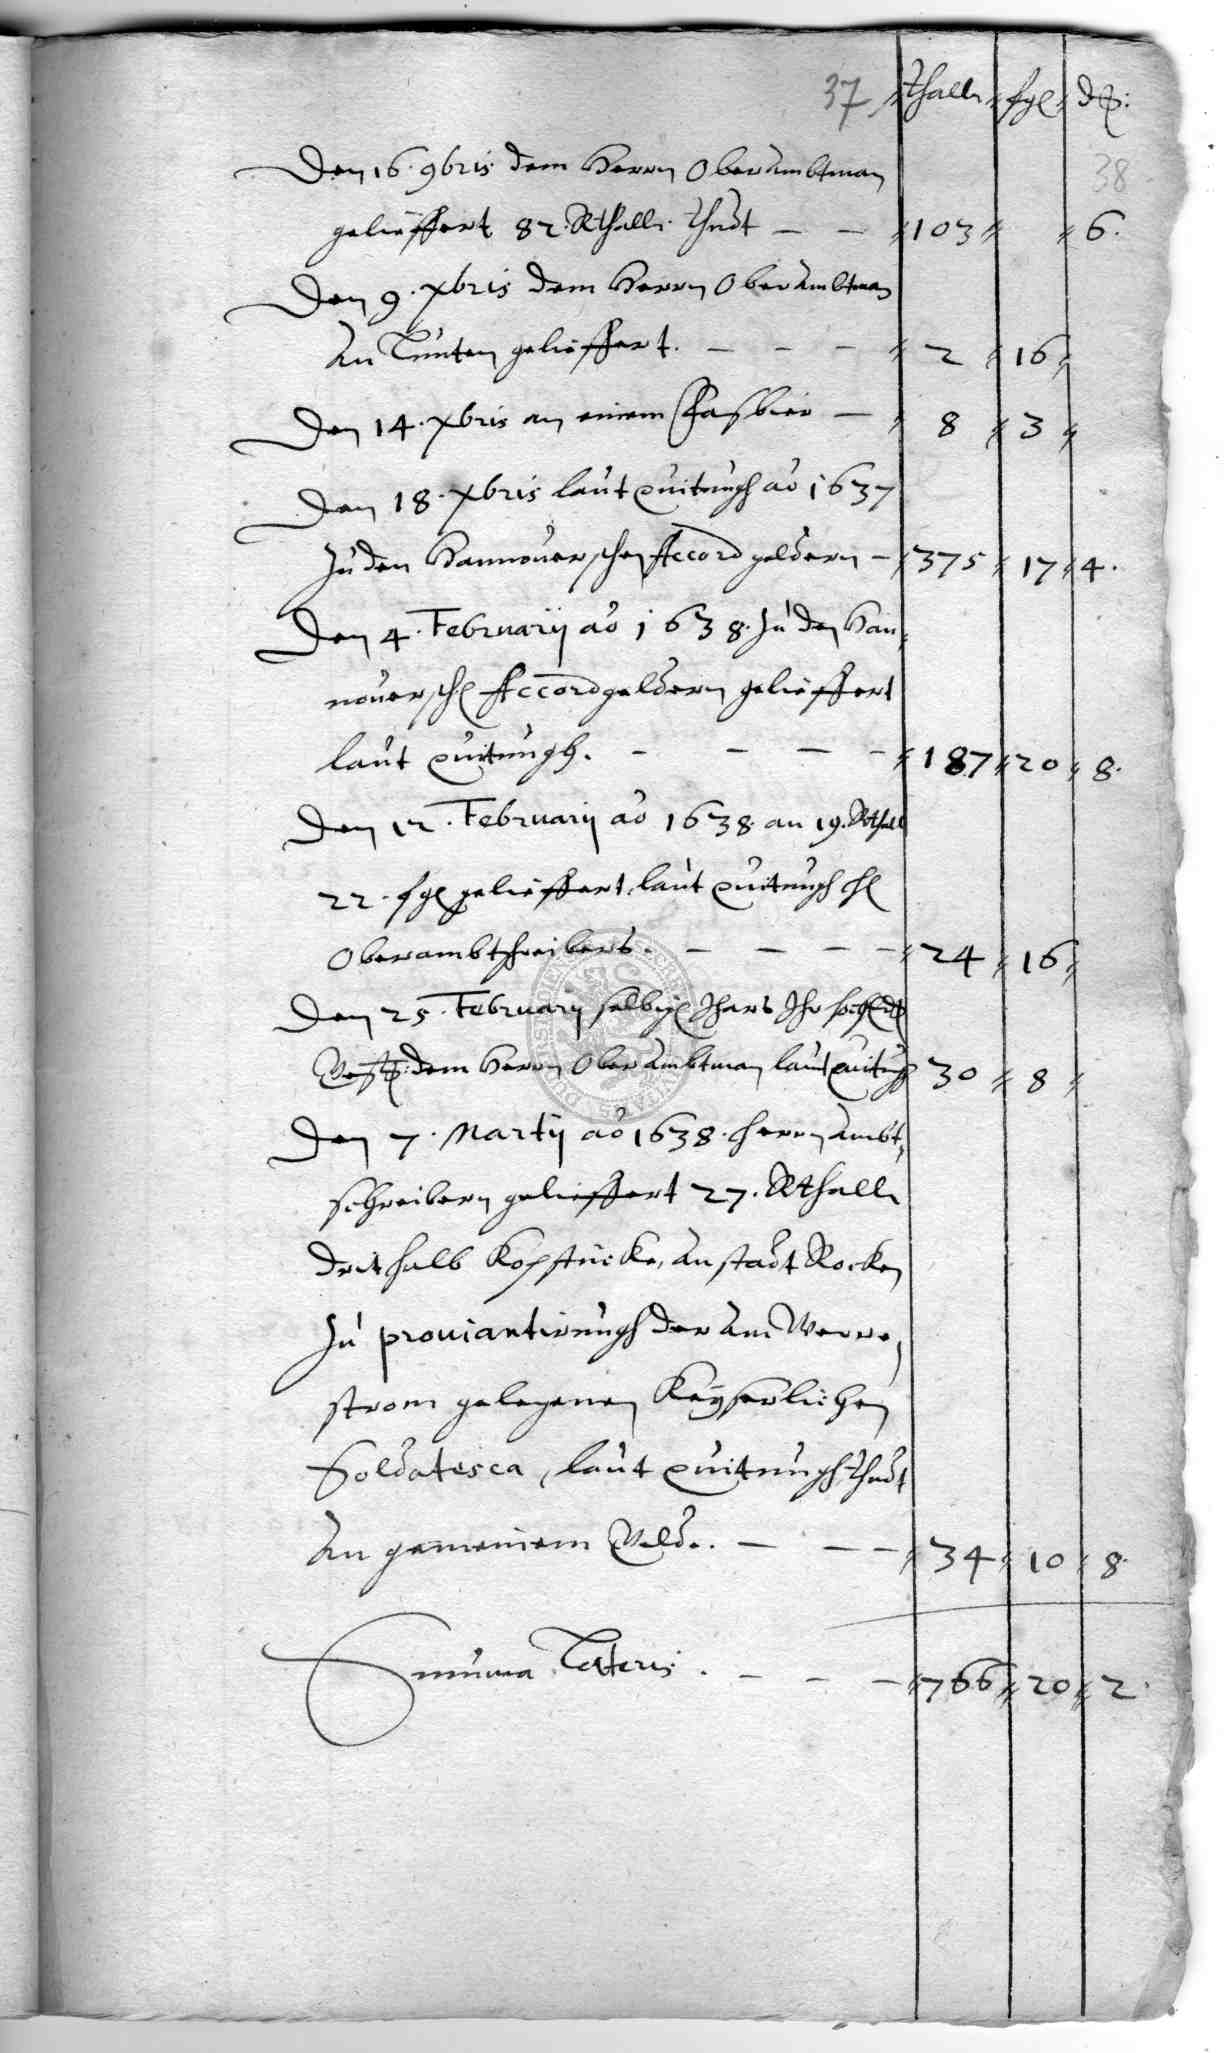 37 thall. fgl d₰:
38
Den 16. 9bris dem Herrn Oberambtman
gelieffert 82. Rthall. thudt — — 103 6.
Den 9. Xbris dem Herrn Oberambtman
an Lunten gelieffert. — — — 2 16
Den 14. Xbris an einem Faßbier — 8 3
Den 18. Xbris laut quitungh aõ 1637
Zu den Hannouerschen Accord geldern — 375 17 4.
Den 4. Februarij aõ 1638. Zu den Han-
nouersch Accordgeldern gelieffert
laut quitungh. — — — — 187 20 8.
Den 12. Februarij aõ 1638. an 19. Rthall
22. fgl gelieffert, laut quitungh
Oberambtschreibers. — — — — 24 16
Den 25. Februarij selbigl Jhars Ihr
dem Herrn Oberambtman laut quitungh 30 8
Den 7. Martij aõ 1638. Herrn Ambt-
schreibern gelieffert 27. Rthall
drithalb Kopstücke, anstadt Rocken
Zu prouiantirungh der am Werre
strom gelegenen Keyserlichen
Soldatesca, laut quitungh, thudt
an gemeinem Gelde. — — — 34 10 8.
Summa Lateris. — — — 766 20 2.